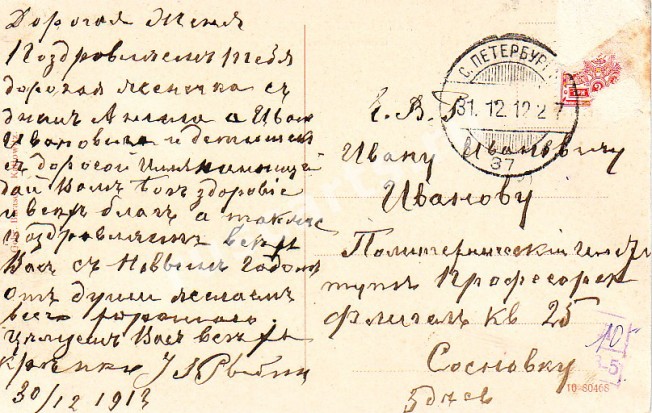 Дорогая Женя
Поздравляемъ тебя
дорогая Женичка съ
днемъ Ангела а Иван
Ивановича и детишекъ
съ дорогой Имянинницей
дай Вамъ Богъ здоровіе
и всехъ благъ а также
поздравляемъ всехъ
Васъ съ Новымъ Годомъ
отъ души желаемъ
всего хорошаго.
Целуемъ Васъ всехъ
крепко
30/12 1912
С. ПЕТЕРБУРГ
31.12.12 2 7
37
Е. В. Б.
Ивану Ивановичу
Иванову
Политехническій Инсти
тутъ Професорск
Флигель кв 25
Сосновку
10
5
10 80468